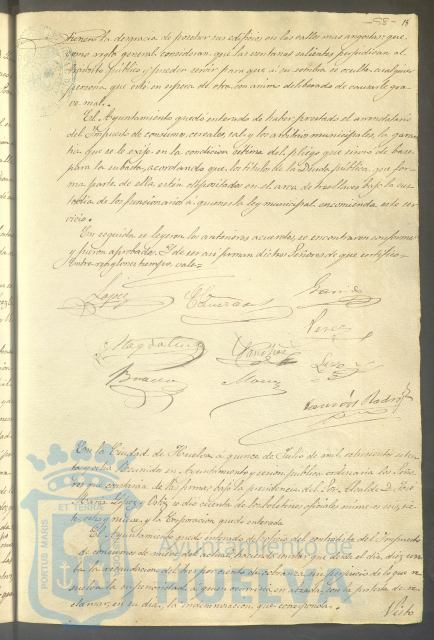 58 - 15
tienen la desgracia de poseer sus edificios en las calles mas angostas; que,
como regla general consideran, que las ventanas salientes perjudican al
tránsito público, y pueden servir para que á su sombra se oculte cualquier
persona que esté en espera de otra con animo deliberado de causarle gra-
ve mal.
El Ayuntamiento quedó enterado de haber prestado el arrendatario
del Impuesto de consumo, cereales, sal y los arbitrios municipales, la garan-
tia que se le exije en la condicion última del pliego que sirvió de base
para la subasta, acordando que los titulos de la Deuda pública, que for-
ma parte de ella, esten depositados en el arca de tres llaves bajo la cus-
todia de los funcionarios á quienes la ley municipal encomienda este ser-
vicio.
En seguida se leyeron los anteriores acuerdos, se encontraron conformes
y fueron aprobados. Y de ser asi firman dichos Señores de que certifico.
Entre renglones tiempo, vale
Lopez
Garcia
Perez
Magdalena
En la Ciudad de Huelva á quince de Julio de mil ochocientos seten-
ta y ocho, reunidos en Ayuntamiento y sesion pública ordinaria los Seño-
res que espresan de las firmas, bajo la presidencia del Sor. Alcalde D. José
Maria Lopez y Ortiz se dió cuenta de los boletines oficiales números seis, sie-
te, ocho y nueve, y la Corporacion quedó enterada.
El Ayuntamiento quedó enterado del oficio del contratista del Impuesto
de consumos de
la recaudacion del
suelva la superioridad, á quien
clamar, en su dia, la indemnizacion que corresponda.
Visto
ET TERRAE
PORTUS MARIS
Ayuntamiento de
HUELVA